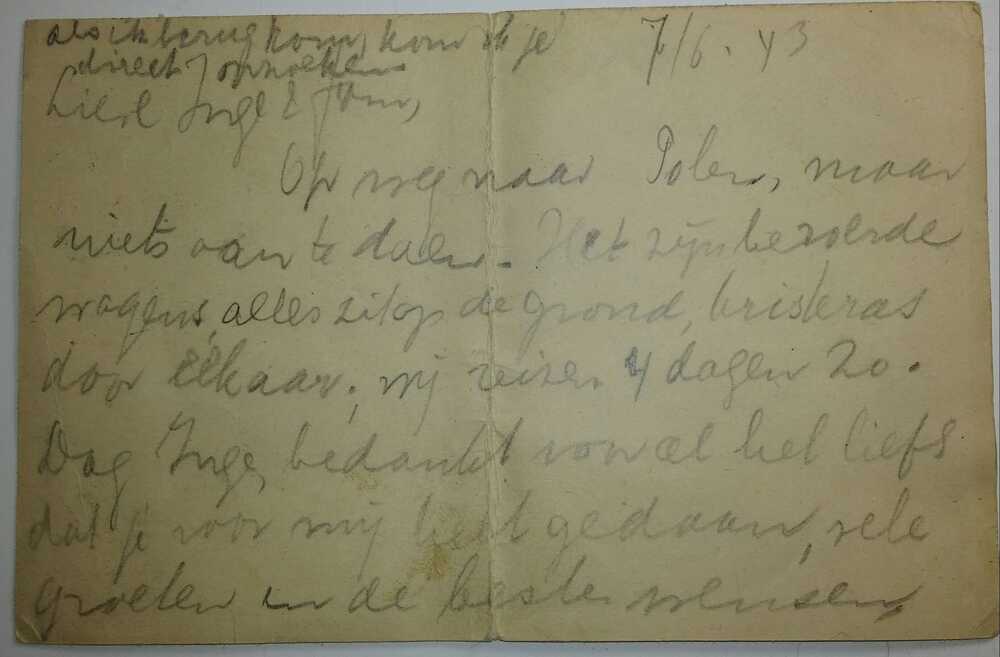 als ik terug kom, kom ik je
direct opzoeken
7/6. 43
Lieve Inge & Jom,
Op weg naar Polen, maar
niets aan te doen. Het zijn beroerde
wagens, alles zit op de grond, kriskras
door elkaar; wij reizen 4 dagen zo.
Dag Inge, bedankt voor al het liefs
dat je voor mij hebt gedaan, vele
groeten en de beste wensen,